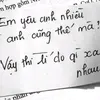 Em yêu anh nhiều
anh cũng thế mà
Vậy thì lí do gì xa
nhau